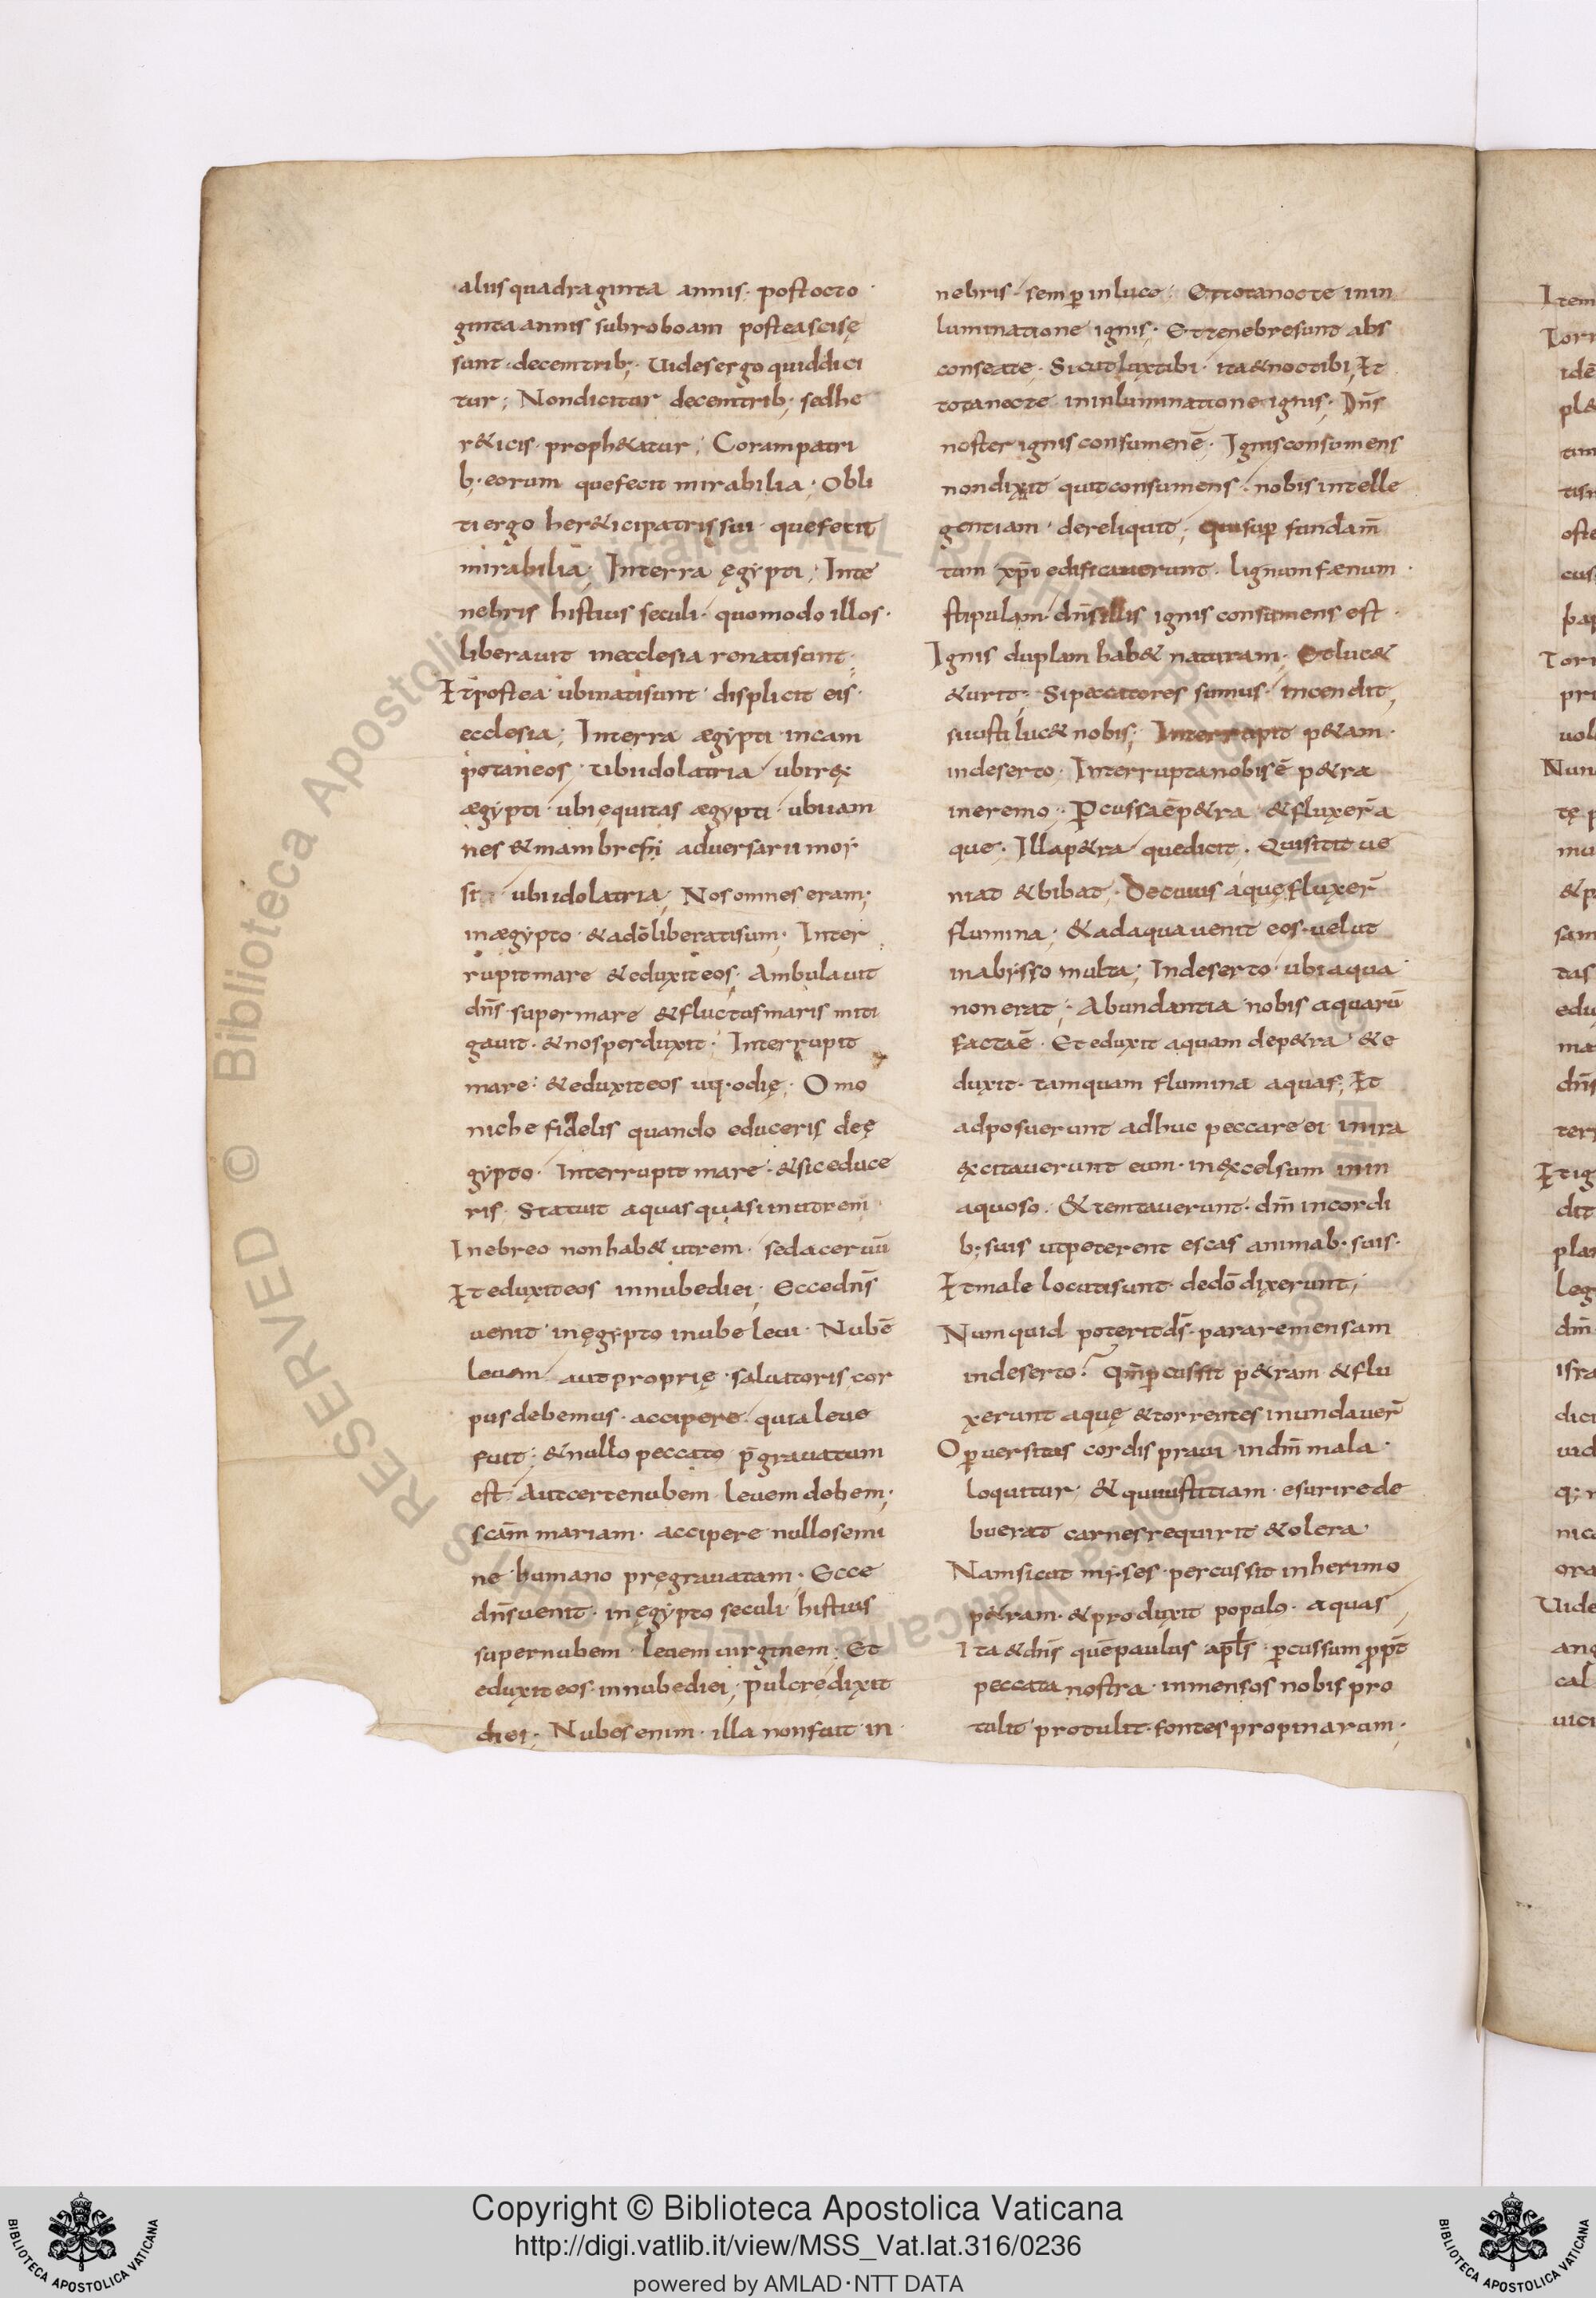 aliisquadraginta annis· postocto
gintaannis subroboam posteascisę
sunt·decemtrib;· Uidesergo quiddici
tur; Nondicitur decemtrib; sedhe
r&icis· proph&atur; Corampatri
b;·eorum quefecit mirabilia· Obli
tiergo her&icipatrissui· quefecit
mirabilia; Interra ęgÿpti; Inte
nebris histius seculi· quomodo illos·
liberauit inecclesia renatisunt·
Etpostea ubinatisunt displicit eis·
ecclesia; Interra ægÿpti incam
potaneos· ubiidolatria ubirex
ægÿpti· ubi equitas ægÿpti· ubiiam
nes &mambres adversarii moÿ
si ubiidolatria; Nosomnes eram;
inægÿpto· &adō liberatisum; Inter
rupitmare &eduxiteos; Ambulauit
dn̄s·supermare &fluctusmaris miti
gauit·&nosperduxit; Interrupit
mare· &eduxiteos usq·odię; O mo
niche fidelis quando educeris deę
gÿpto· Interrupit mare·&siceduce
ris· Statuit aquas quasi inutrem
Inebreo nonhab& utrem· sedaceruū
Eteduxiteos innubediei; Eccedn̄s
uenit inęgÿpto inube leui· Nubē
leuem aut proprię·saluatoris cor
pusdebemus·accipere quialeue
fuit; &nullo peccato p̄grauatum
est Autcertenubem leuemdebem;·
scām mariam· accipere nullosemi
ne humano pręgrauatam· Ecce
dn̄suenit·inęgÿpto seculi histius
supernubem leuem uirginem; Et
eduxiteos·innubediei; pulcrędixit
diei; Nubesenim· illa nonfuit in
nebris· semp inluce; Ettotanocte inin
luminatione ignis· Ettenebresunt abs
conseate· Sicutluxtibi· ita&noctibi, Et
totanocte ininluminatione ignis; Dn̄s
noster ignis consumenē· Ignisconsumens
nondixit quitconsumens· nobis intelle
gentiam dereliquit; Quisup fundam̄
tum xp̄i edificauerunt· lignum fænum·
stipulam·dn̄sillis ignis consumens est·
Ignis duplam hab& naturam· Etluc&
&urit; Sipeccatores sumus· incendit,
siiusti luc& nobis; Interrupit p&ram·
indeserto· Interruptanobisē p&ra
ineremo;· P̄cussaēp&ra &fluxer̄a
que· Illap&ra quedicit· Quisitit ue
niat &bibat· Decuius aquęfluxer̄
flumina; &adaquauenit eos·uelut
inabÿsso multa; Indeserto· ubiaqua
non erat; Abundantia nobis aquarū
factaē· Eteduxit aquam dep&ra &e
duxit· tamquam flumina aquas; Et
adposuerunt adhuc peccare ei inira
excitauerunt eum·inexcelsum inin
aquoso· &temtauerunt·dm̄ incordi
b;suis utpeterent escas animab·suis·
Etmale locutisunt·dedō dixerunt;
Numquid poteritds̄·pararemensam
indeserto? Qn̄m p̄cussit p&ram &flu
xerunt aquę &torrentes inundauer̄
O p̄uersitas cordis praui indm̄ mala·
loquitur· &quiiustitiam esurirede
buerat carnesrequirit &olera·
Namsicut mÿses percussit inherimo
p&ram·&produxit populo·aquas
Ita &dn̄s quēpaulus apl̄s p̄cussum ppt̄
peccata nostra inmensos nobis pro
tulit protulit·fontespropinarum·